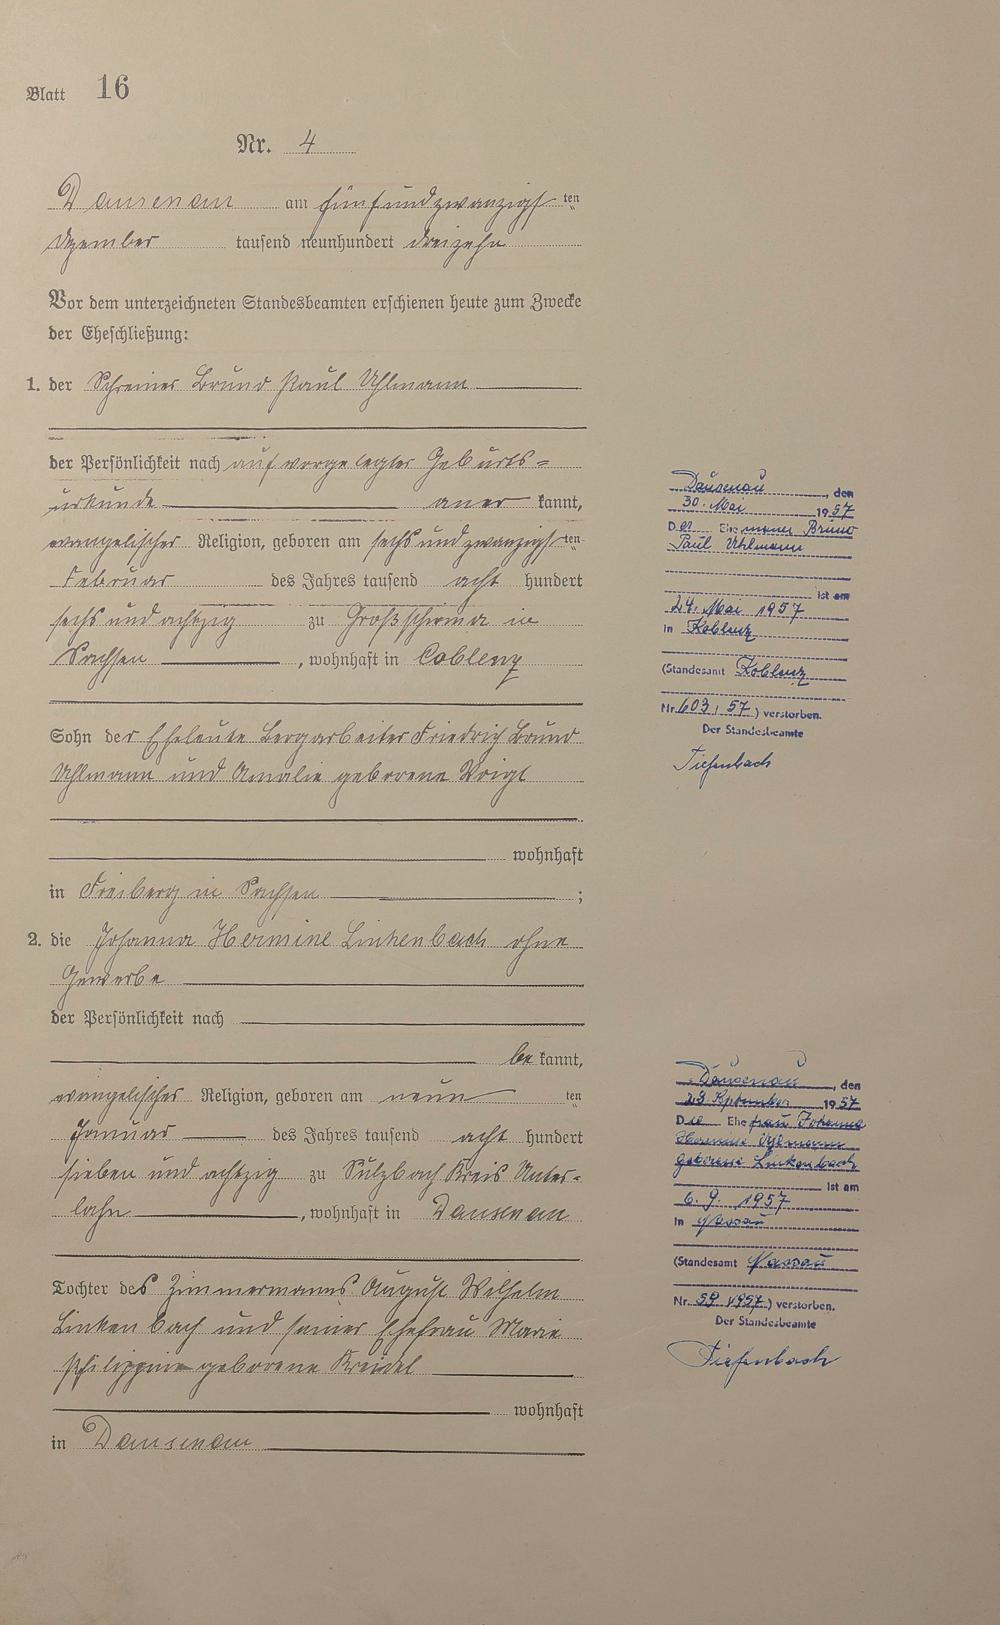 Blatt 16
Nr. 4
Dausenau am fünfundzwanzigsten
Dezember tausend neunhundert dreizehn
Vor dem unterzeichneten Standesbeamten erschienen heute zum Zwecke
der Eheschließung:
1. der Schreiner Bruno Paul Uhlmann
der Persönlichkeit nach auf vorgelegter Geburts=
urkunde anerkannt,
evangelischer Religion, geboren am sechs und zwanzigsten
Februar des Jahres tausend acht hundert
sechs und achtzig zu Großschirma in
Sachsen, wohnhaft in Coblenz
Sohn der Eheleute Bergarbeiter Friedrich Bruno
Uhlmann und Amalie geborene Voigt
wohnhaft
in Freiberg in Sachsen ;
2. die Johanna Hermine Linkenbach ohne
Gewerbe
der Persönlichkeit nach
bekannt,
evangelischer Religion, geboren am neunten
Januar des Jahres tausend acht hundert
sieben und achtzig zu Sulzbach Kreis Unter=
lahn, wohnhaft in Dausenau
Tochter des Zimmermanns August Wilhelm
Linkenbach und seiner Ehefrau Marie
Philippine geborene Kreidel
wohnhaft
in Dausenau
Dausenau, den
30. Mai 1957
Der Ehemann Bruno
Paul Uhlmann
ist am
24. Mai 1957
in Koblenz
(Standesamt Koblenz
Nr. 603/57) verstorben.
Der Standesbeamte
Tiefenbach
Dausenau, den
23 September 1957
Die Ehefrau Johanna
Hermine Uhlmann
geborene Linkenbach
ist am
6. 9. 1957
in Nassau
(Standesamt Nassau
Nr. 59/1957) verstorben.
Der Standesbeamte
Tiefenbach